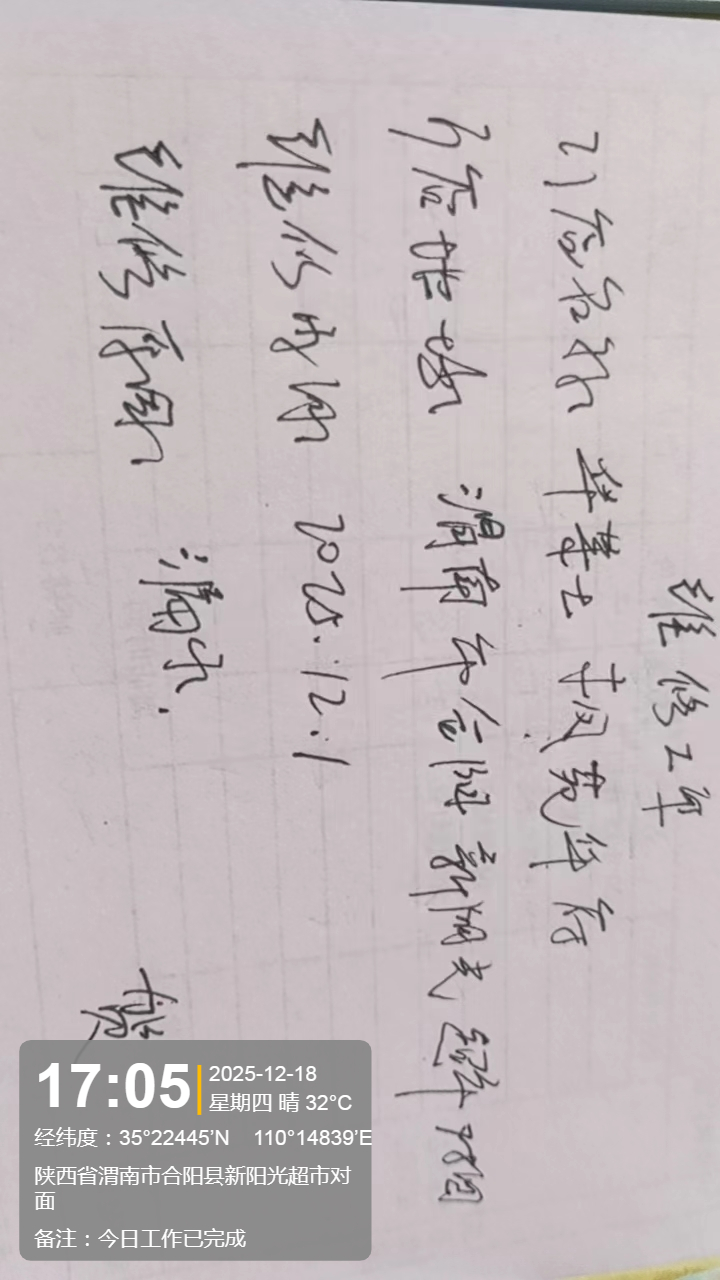 维修工单
门店名称 华莱士 凤凭年存
门店地址 渭南市合阳新阳光超市对面
维修时间 2025.12.1
维修原因 漏水.
17:05
2025-12-18
星期四 晴 32°C
经纬度：35°22445'N 110°14839'E
陕西省渭南市合阳县新阳光超市对
面
备注：今日工作已完成